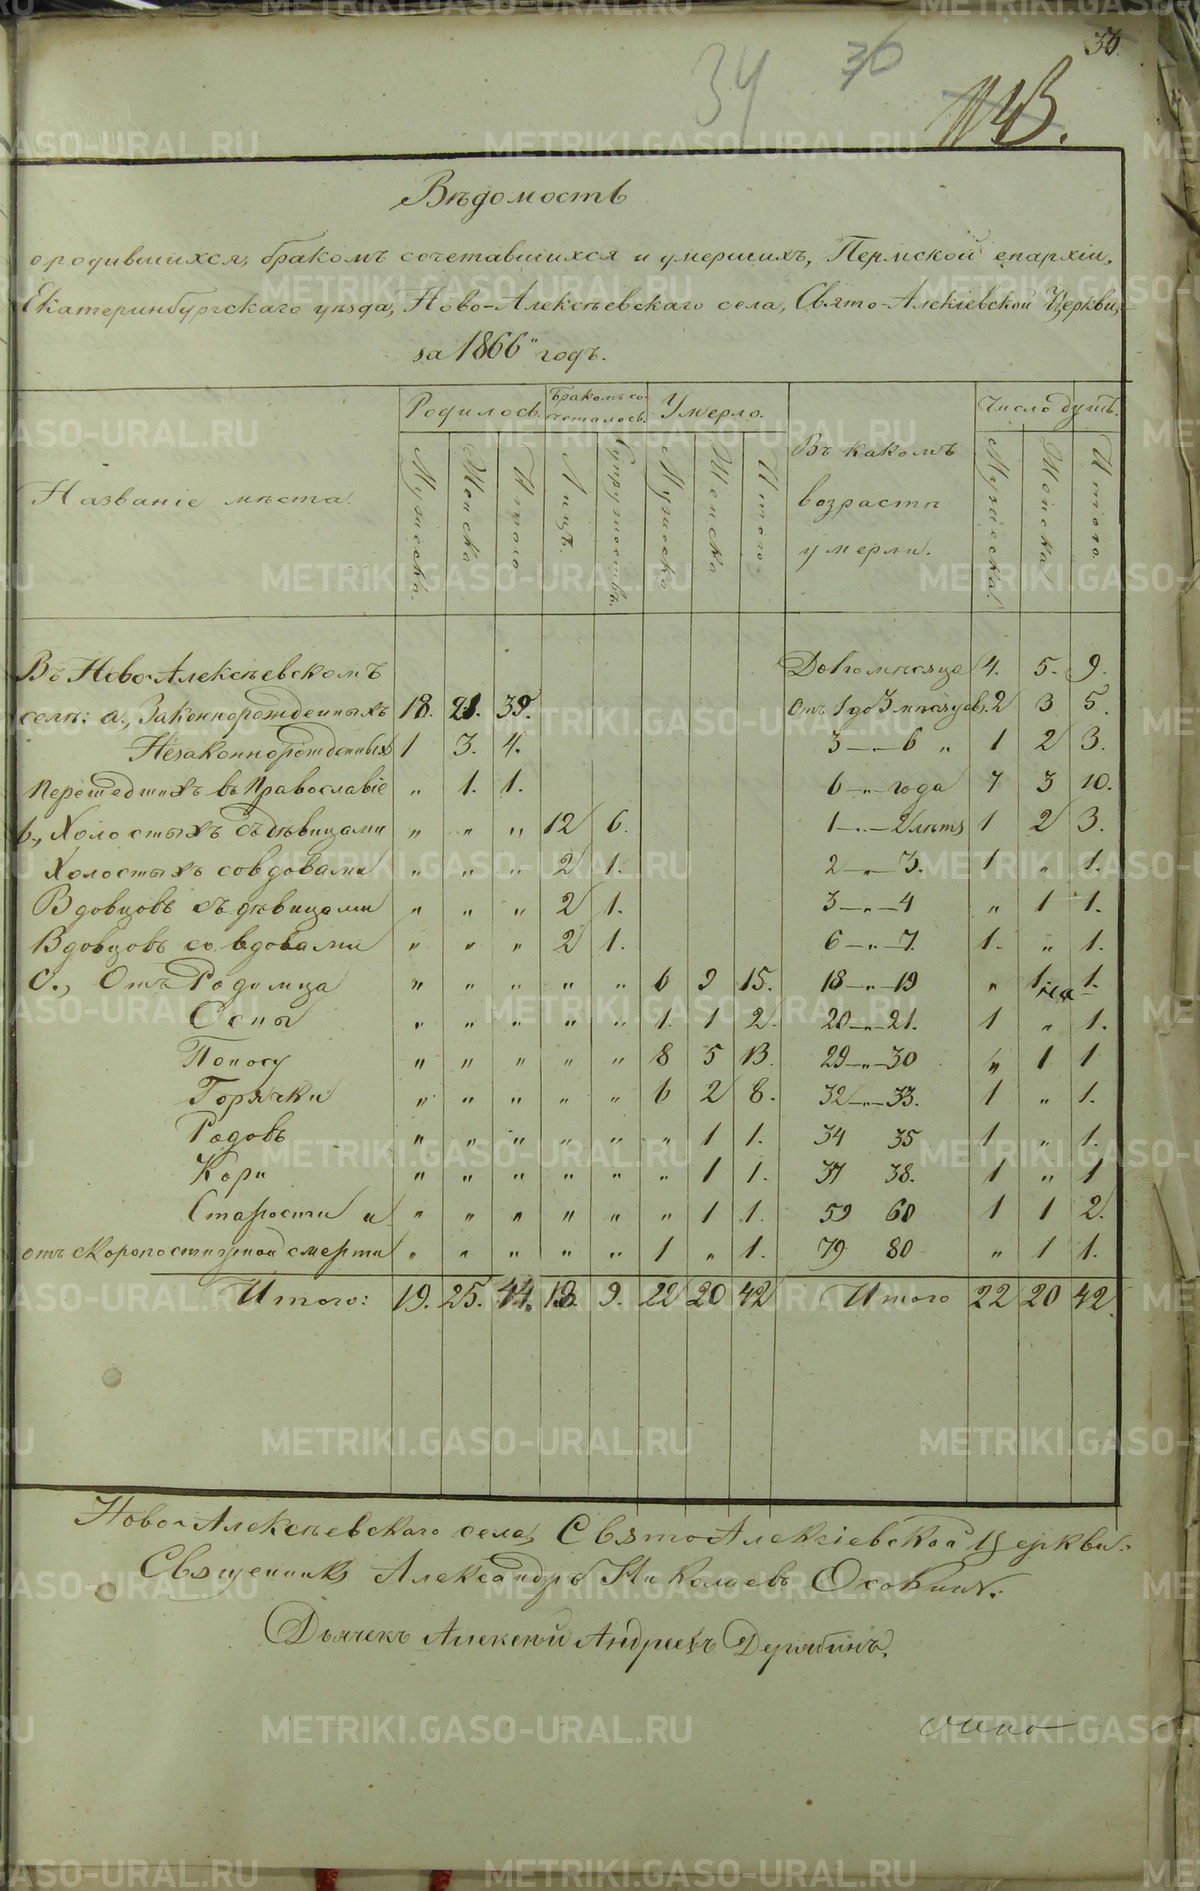 36.
34 36
Вѣдомость
о родившихся, бракомъ сочетавшихся и умершихъ, Пермской епархіи,
Екатеринбургскаго уѣзда, Ново-Алексѣевскаго села, Свято-Алексіевской Церкви,
за 1866" годъ.
Названіе мѣста. Родилось. Бракомъ сочеталось. Умерло. Въ какомъ возрастѣ умерли. Число душъ.
Мужеска. Женска Итого Лицъ. Супружествъ. Мужеска Женска Итого. Мужеска. Женска Итого
Въ Ново-Алексѣевскомъ До 1го мѣсяца 4. 5. 9.
селѣ: а., Законнорожденныхъ 18. 21. 39. Отъ 1 до 3 мѣсяцевъ. 2 3 5.
Незаконнорожденныхъ 1 3. 4. 3 —„— 6 „ 1 2 3.
Перешедшихъ въ Православіе „ 1. 1. 6 —„— года 7 3 10.
b., Холостыхъ съ дѣвицами „ „ „ 12 6. 1 —„— 2 лѣтъ 1 2 3.
Холостыхъ со вдовами „ „ „ 2 1. 2 —„— 3. 1 „ 1.
Вдовцовъ съ дѣвицами „ „ „ 2 1. 3 —„— 4 „ 1 1.
Вдовцовъ со вдовами „ „ „ 2 1. 6 —„— 7. 1. „ 1.
С., Отъ Родимца „ „ „ „ „ 6 9 15. 18 —„— 19 „ 1 1.
Оспы „ „ „ „ „ 1. 1 2. 20 —„— 21. 1 „ 1.
Поносу „ „ „ „ „ 8 5 13. 29 —„— 30 „ 1 1
Горячки „ „ „ „ „ 6 2 8. 32 —„— 33. 1 „ 1.
Родовъ „ „ „ „ „ „ 1 1. 34 35 1 „ 1.
Кори „ „ „ „ „ „ 1 1. 37 38. 1 „ 1
Старости и „ „ „ „ „ „ 1 1. 59 60 1 1 2.
отъ скоропостижной смерти „ „ „ „ „ 1 „ 1. 79 80 „ 1 1.
Итого: 19. 25. 44. 18. 9. 22 20 42 Итого 22 20 42.
Ново-Алексѣевскаго села, Свято-Алексіевской Церкви:
Священникъ Александръ Николаевъ
Дьячекъ Алексѣй Андреевъ Дерябинъ.
METRIKI.GASO-URAL.RU